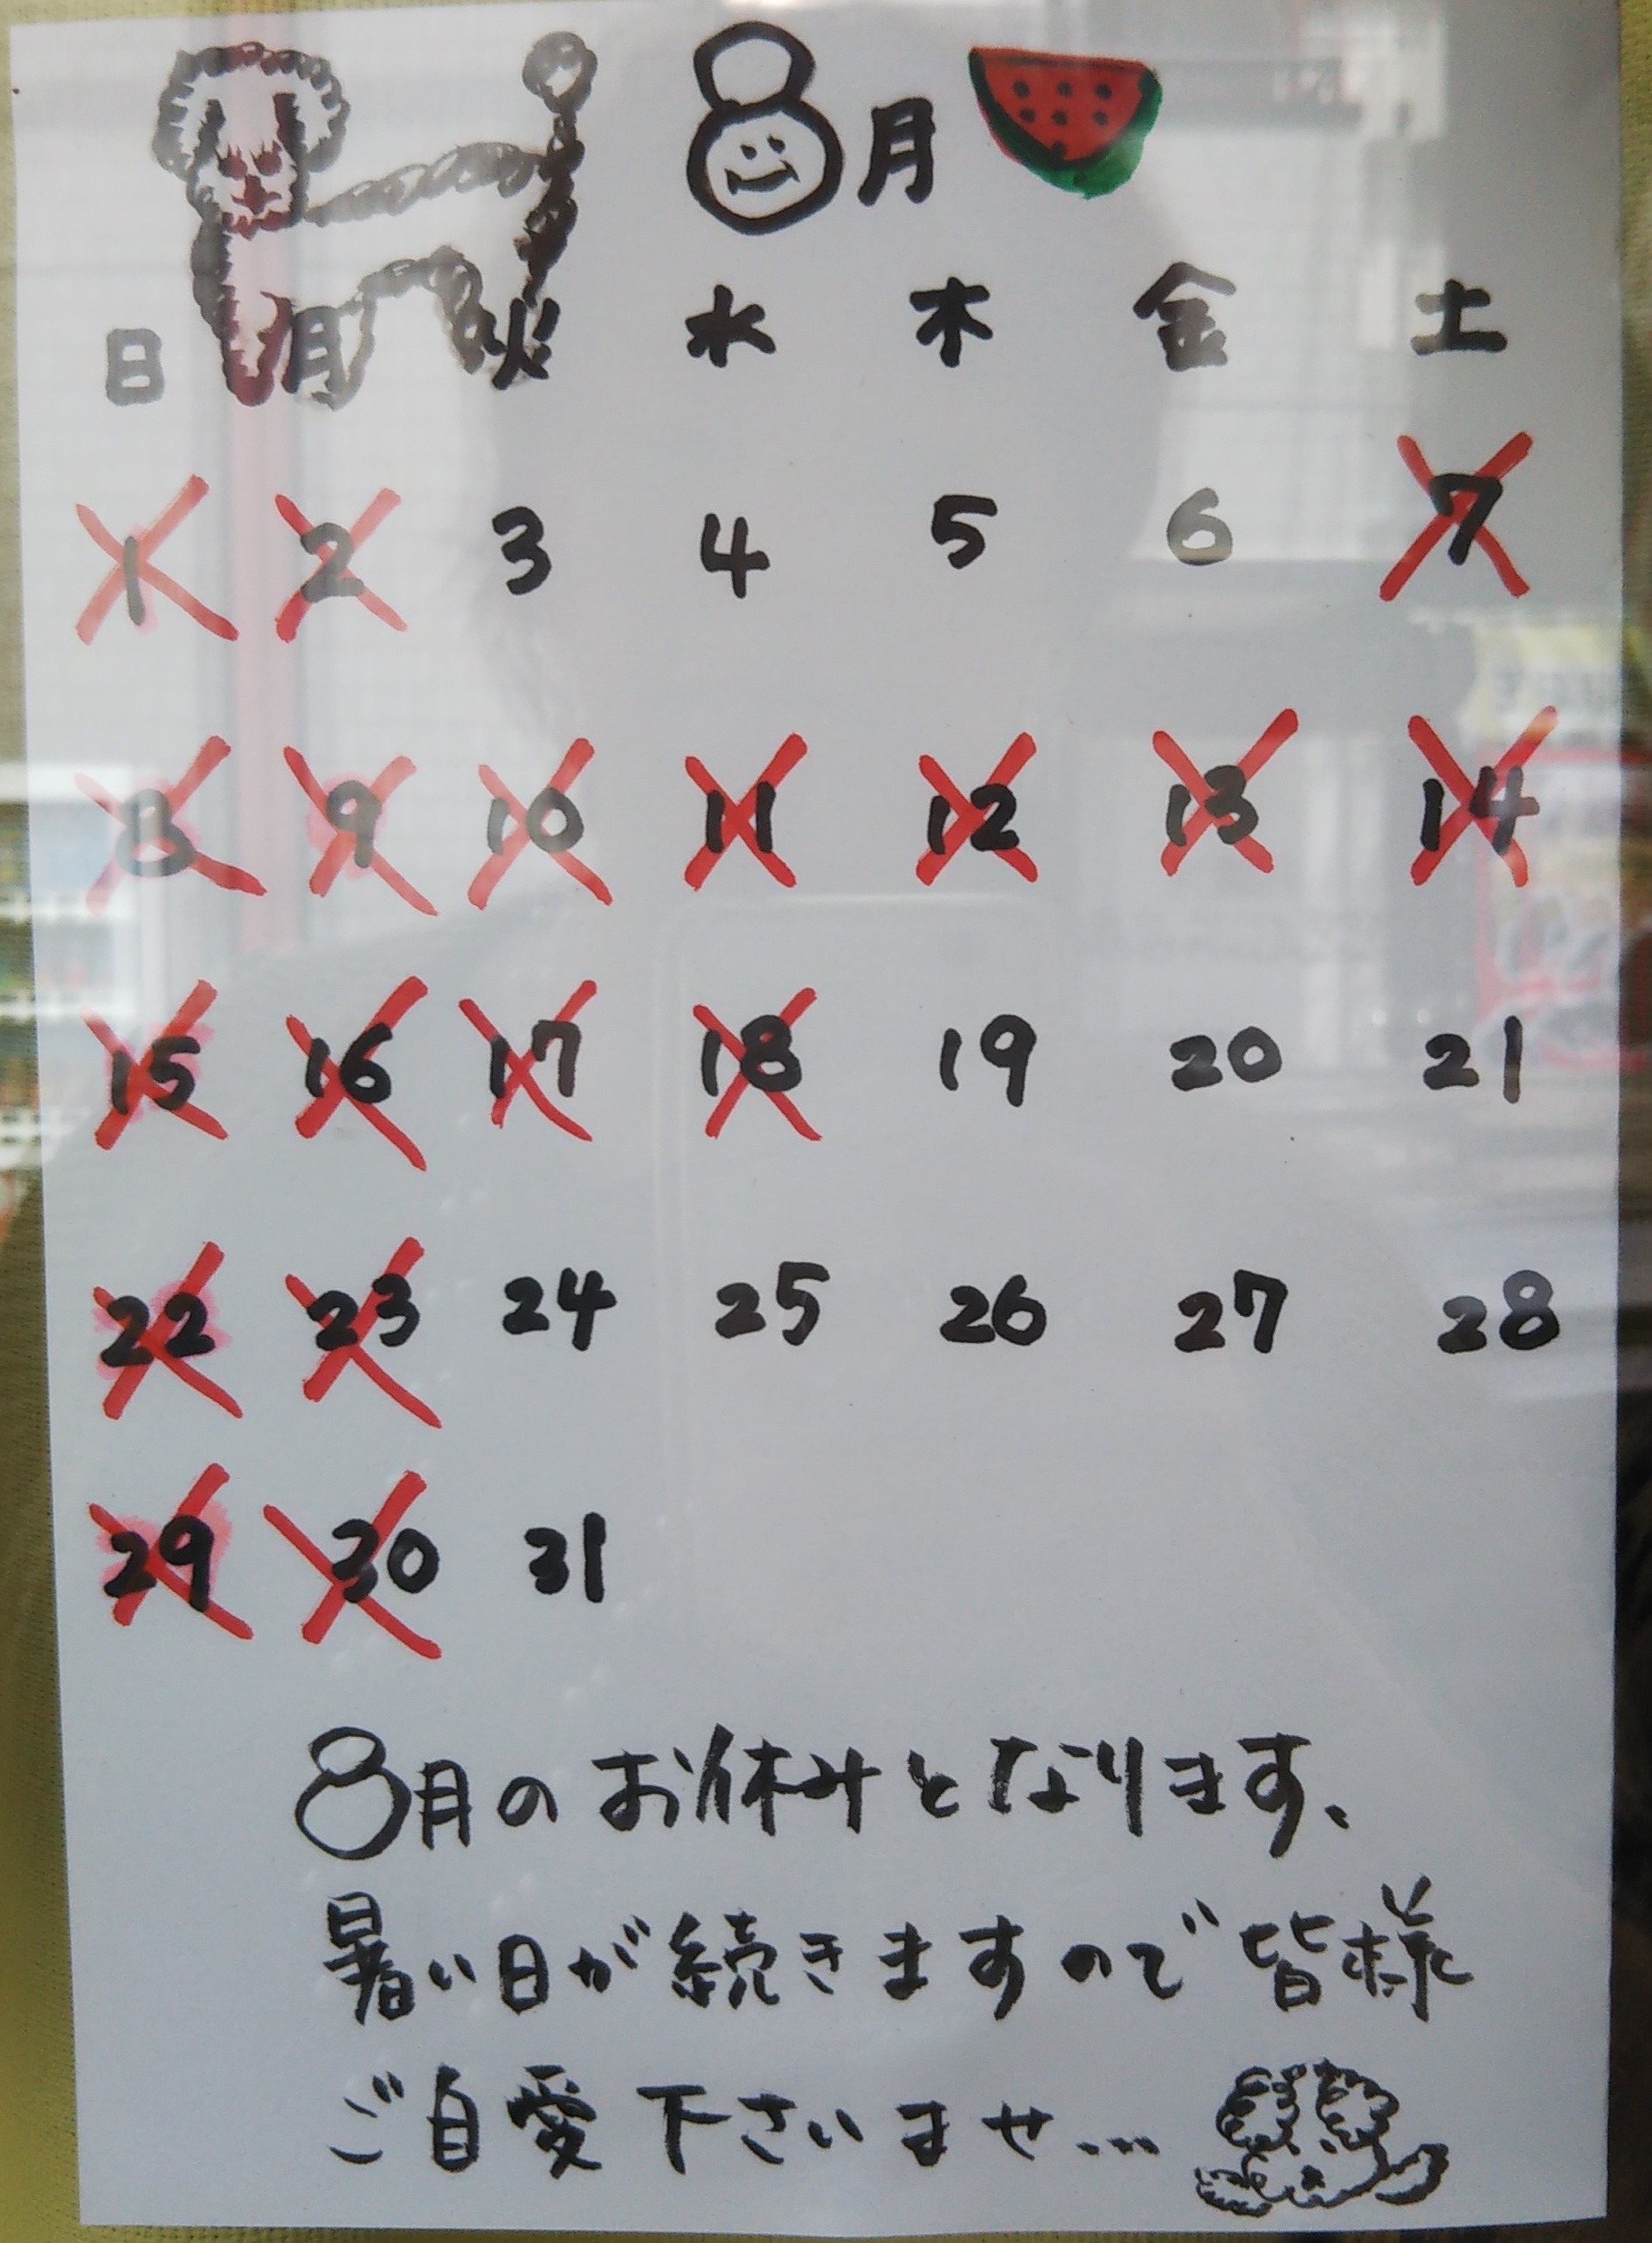 8月
日 月 火 水 木 金 土
1 2 3 4 5 6 7
8 9 10 11 12 13 14
15 16 17 18 19 20 21
22 23 24 25 26 27 28
29 30 31
8月のお休みとなります、
暑い日が続きますので皆様
ご自愛下さいませ…